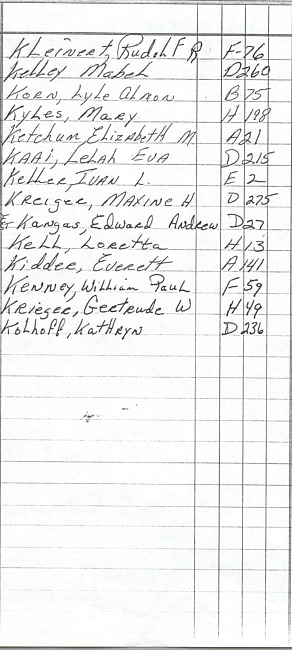 Kleinert, Rudolf R F-76
Kelley Mabel D260
Korn, Lyle Almon B 75
Kyles, Mary H 198
Ketchum Elizabeth M. A21
Kaai, Lelah Eva D 215
Keller, Ivan L. E 2
Kreiger, Maxine H D 275
Kangas, Edward Andrew D27
Kell, Loretta H 13
Kidder, Everett A 141
Kenney, William Paul F 59
Krieger, Gertrude W H 49
Kolhoff, Kathryn D 236